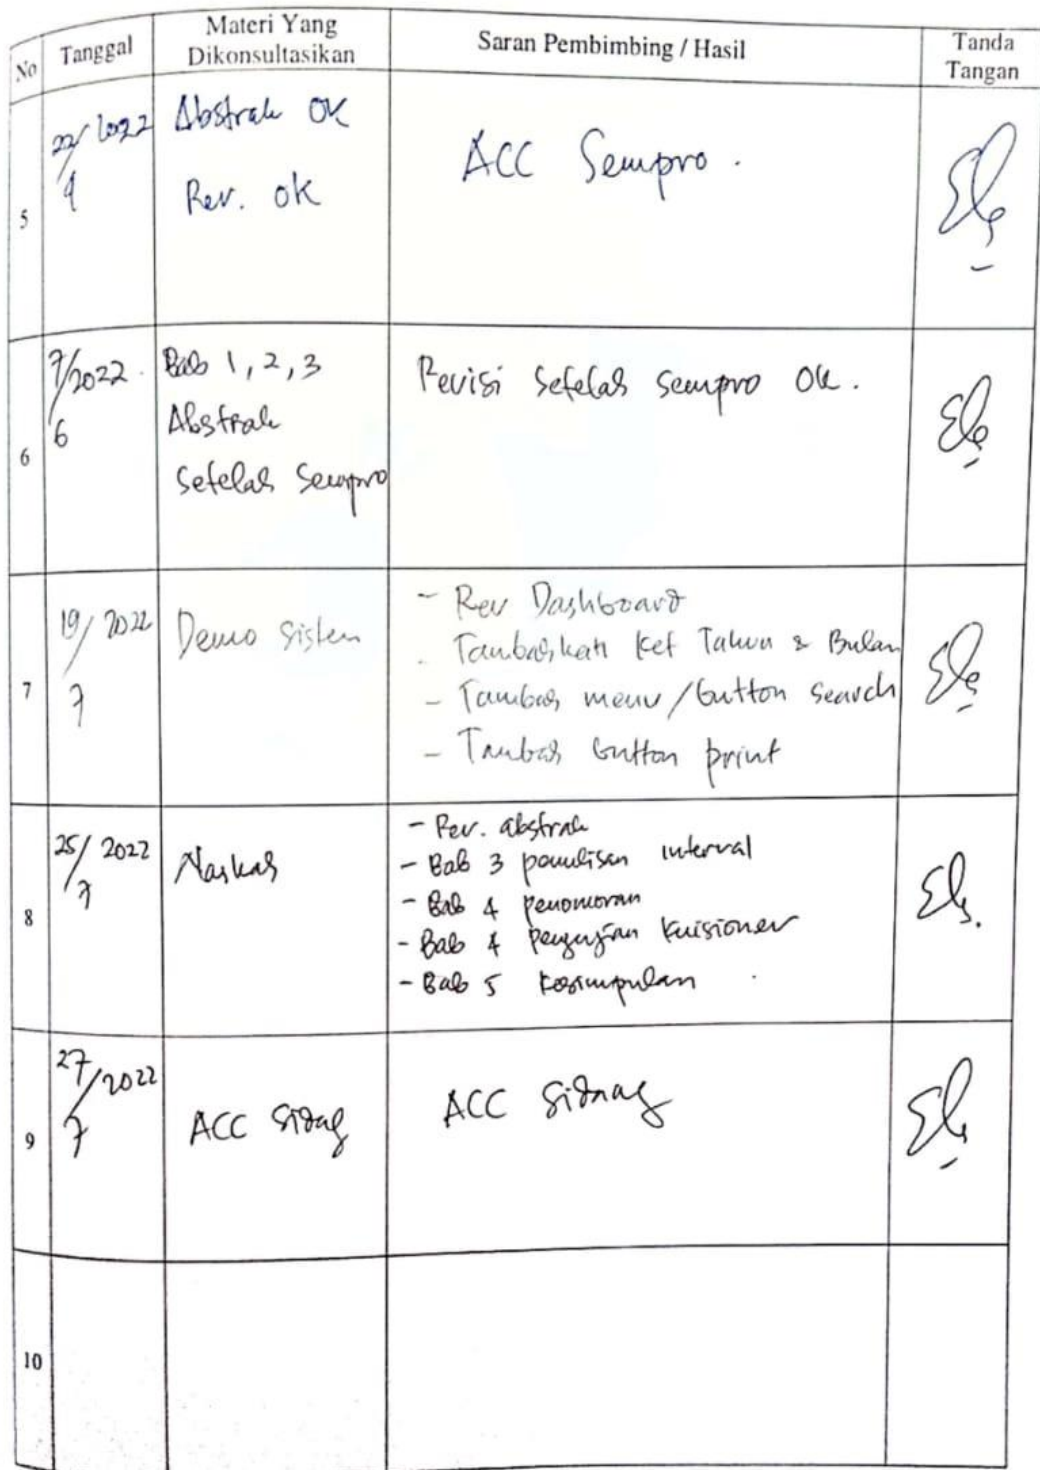 No Tanggal Materi Yang Dikonsultasikan Saran Pembimbing / Hasil Tanda Tangan
5
22/2022
Abstrak OK
Rev. OK
ACC Sempro.
6
7/2022
6
Bab 1, 2, 3
Abstrak
Setelah Sempro
Revisi Setelah sempro OK.
7
19/2022
7
Demo Sistem
- Rev Dashboard
- Tambahkan Ket Tahun & Bulan
- Tambah menu/button search
- Tambah button print
8
25/2022
7
Naskah
- Rev. abstrak
- Bab 3 penulisan interval
- Bab 4 penomoran
- Bab 4 pengujian kuisioner
- Bab 5 kesimpulan
9
27/2022
7
ACC Sidang
ACC Sidang
10